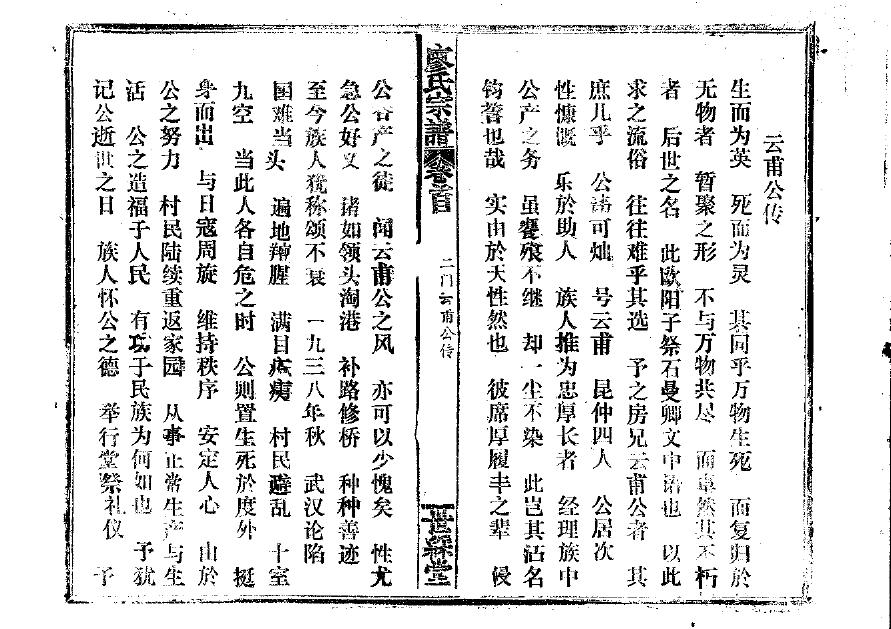 云甫公传
生而为英 死而为灵 其同乎万物生死 而复归於
无物者 暂聚之形 不与万物共尽 而卓然其不朽
者 后世之名 此欧阳子祭石曼卿文中语也 以此
求之流俗 往往难乎其选 予之房兄云甫公者 其
庶几乎 公讳可灿 号云甫 昆仲四人 公居次
性慷慨 乐於助人 族人推为忠厚长者 经理族中
公产之务 虽饔飧不继 却一尘不染 此岂其沽名
钓誉也哉 实由於天性然也 彼席厚履丰之辈 侵
廖氏宗谱 卷首 二门云甫公传 世䌽堂
公吞产之徒 闻云甫公之风 亦可以少愧矣 性尤
急公好义 诸如领头淘港 补路修桥 种种善迹
至今族人犹称颂不衰 一九三八年秋 武汉论陷
国难当头 遍地羶腥 满目疮痍 村民避乱 十室
九空 当此人各自危之时 公则置生死於度外 挺
身而出 与日寇周旋 维持秩序 安定人心 由於
公之努力 村民陆续重返家园 从事正常生产与生
活 公之造福于人民 有功于民族为何如也 予犹
记公逝世之日 族人怀公之德 举行堂祭礼仪 予